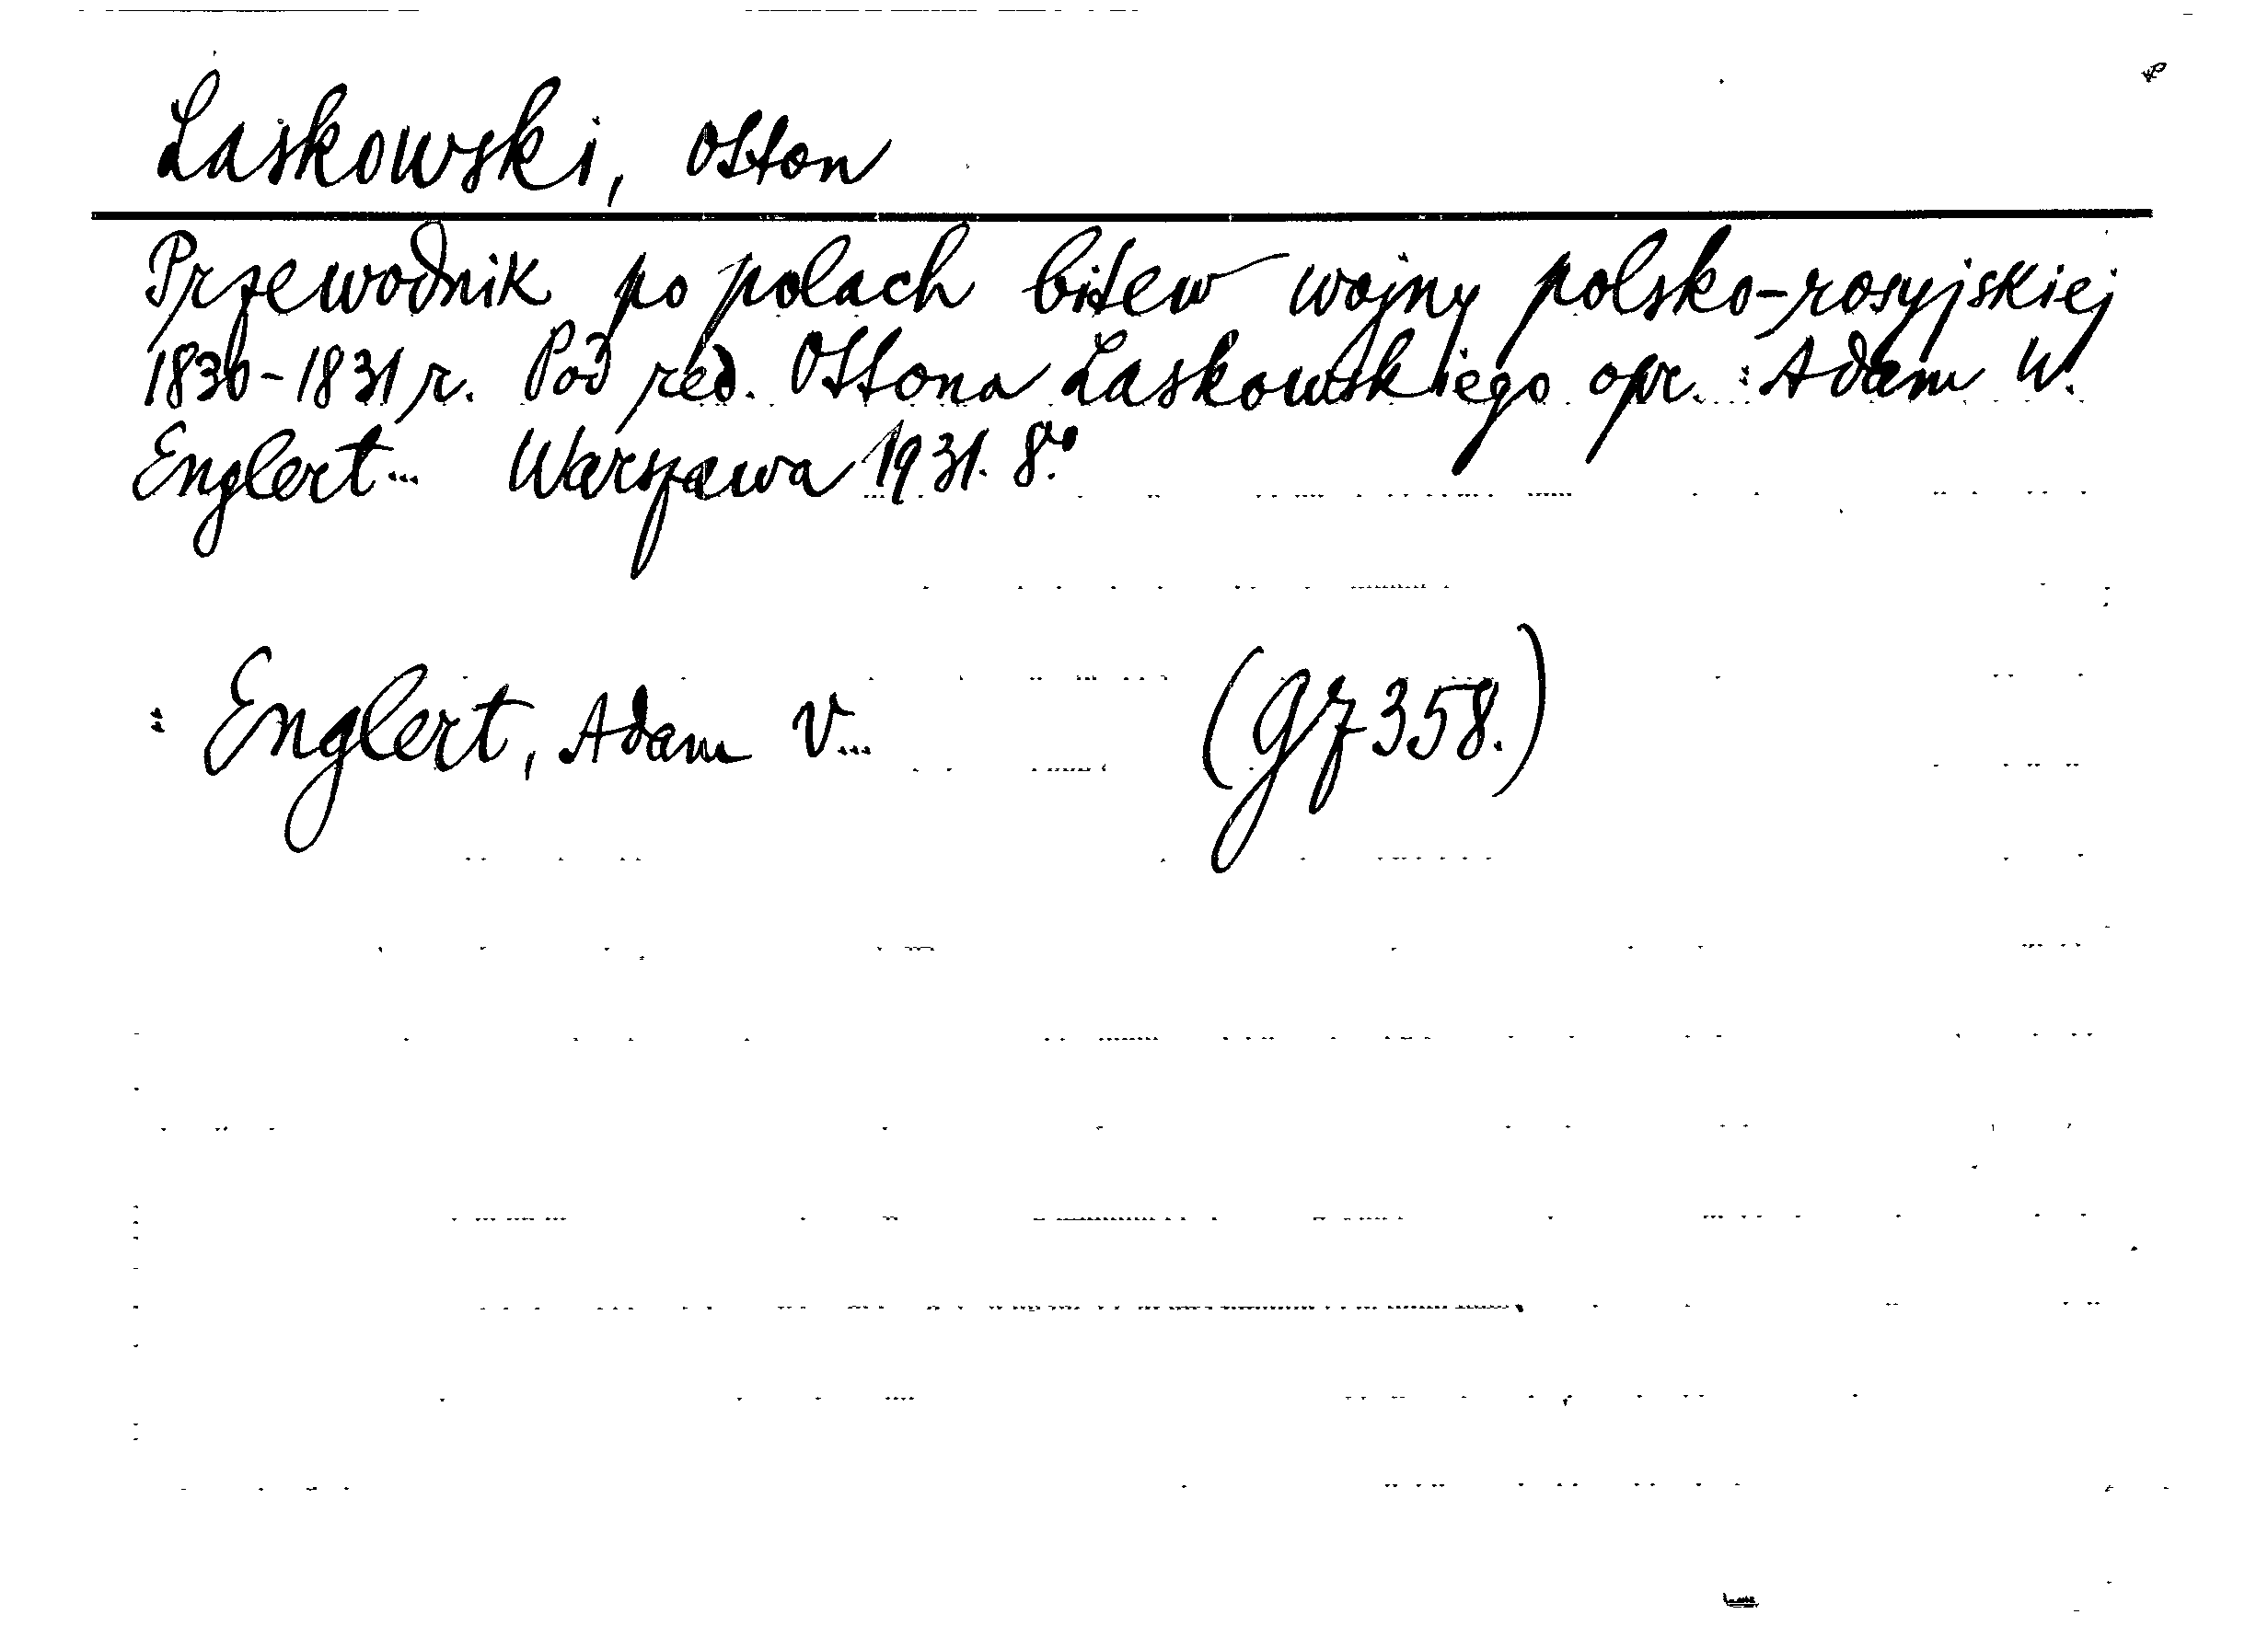 Laskowski, Otton
Przewodnik po polach bitew wojny polsko-rosyjskiej
1830-1831 r. Pod red. Ottona Laskowskiego opr.: Adam W.
Englert... Warszawa 1931. 8º
: Englert, Adam V... (gz 358.)